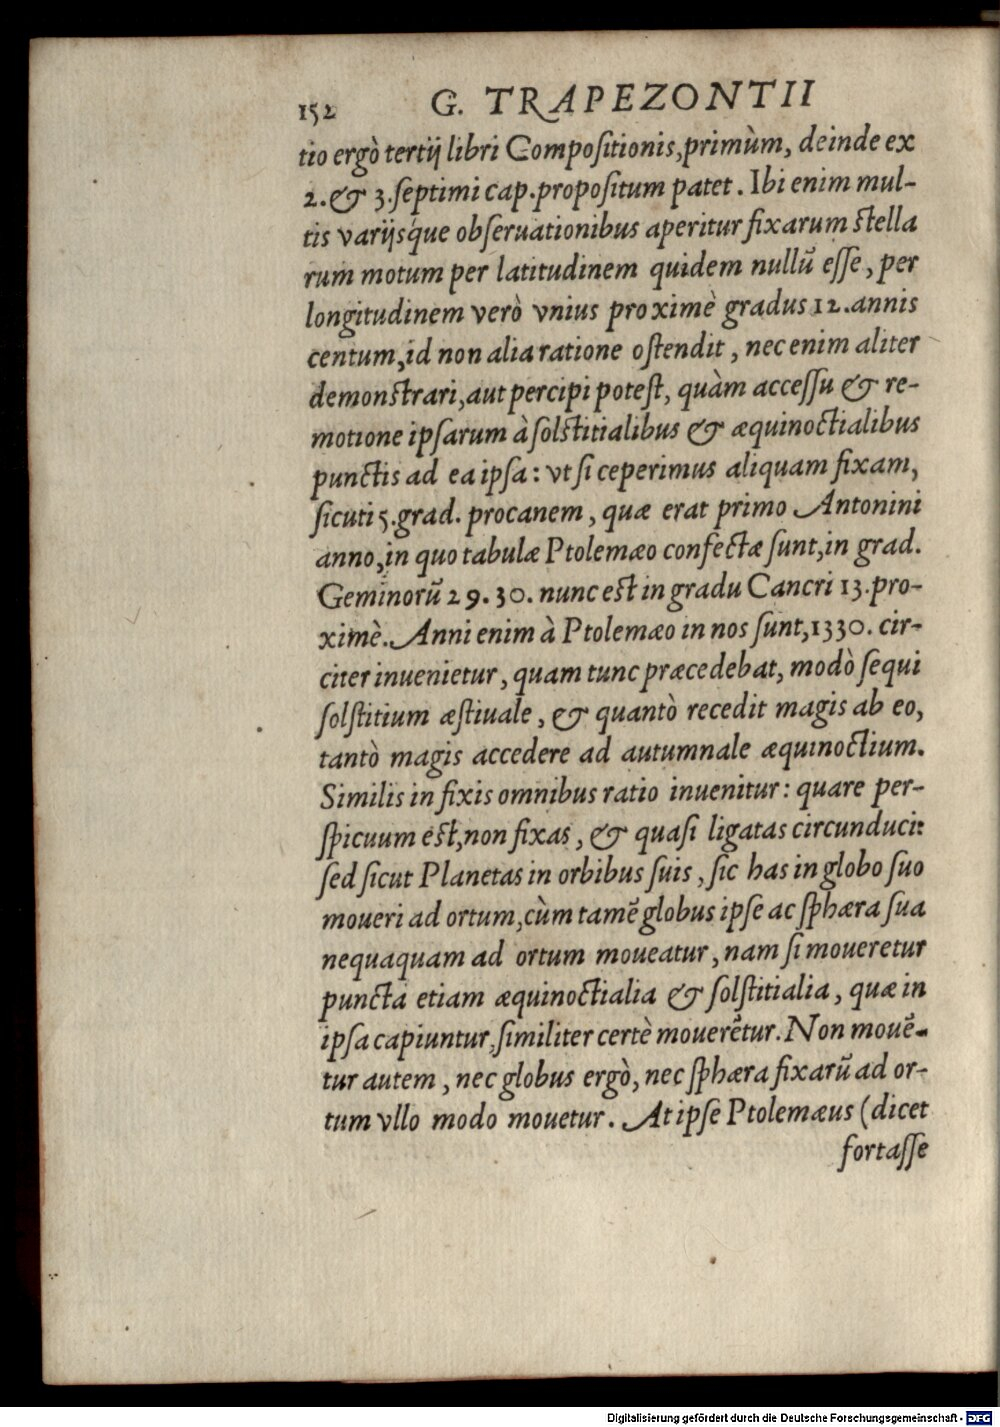 152 G. TRAPEZONTII
tio ergò tertij libri Compoſitionis,primùm, deinde ex
2.& 3.ſeptimi cap.propoſitum patet. Ibi enim mul-
tis varijsq́ue obſeruationibus aperitur fixarum ſtella
rum motum per latitudinem quidem nullū eſſe, per
longitudinem verò vnius proximè gradus 12.annis
centum,id non alia ratione oſtendit, nec enim aliter
demonſtrari,aut percipi poteſt, quàm acceſſu & re-
motione ipſarum à ſolſtitialibus & æquinoctialibus
punctis ad ea ipſa: vt ſi ceperimus aliquam fixam,
ſicuti 5.grad. procanem, quæ erat primo Antonini
anno,in quo tabulæ Ptolemæo confectæ ſunt,in grad.
Geminorū 29.30. nunc eſt in gradu Cancri 13.pro-
ximè. Anni enim à Ptolemæo in nos ſunt,1330. cir-
citer inuenietur, quam tunc præcedebat, modò ſequi
ſolſtitium æſtiuale, & quantò recedit magis ab eo,
tantò magis accedere ad autumnale æquinoctium.
Similis in fixis omnibus ratio inuenitur: quare per-
ſpicuum eſt,non fixas, & quaſi ligatas circunduci:
ſed ſicut Planetas in orbibus ſuis, ſic has in globo ſuo
moueri ad ortum,cùm tamē globus ipſe ac ſphæra ſua
nequaquam ad ortum moueatur, nam ſi moueretur
puncta etiam æquinoctialia & ſolſtitialia, quæ in
ipſa capiuntur,ſimiliter certè mouerētur. Non mouē-
tur autem, nec globus ergò, nec ſphæra fixarū ad or-
tum vllo modo mouetur. At ipſe Ptolemæus (dicet
fortaſſe
Digitalisierung gefördert durch die Deutsche Forschungsgemeinschaft - DFG